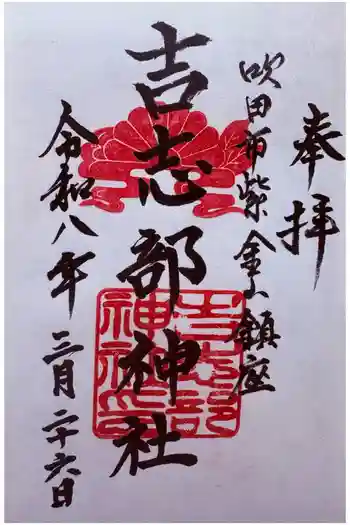 奉拝
吹田市紫金山鎮座
吉志部神社
吉志部
神社印
令和八年
三月二十六日